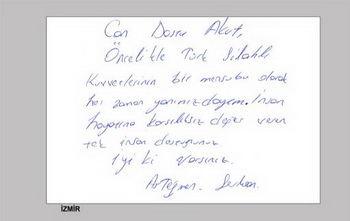 Can Dostu Akut,
Öncelikle Türk Silahlı
Kuvvetlerinin bir mensubu olarak
her zaman yanınızdayım. İnsan
hayatına karşılıksız değer veren
tek insan dostusunuz.
İyi ki varsınız.
Asteğmen.
İZMİR